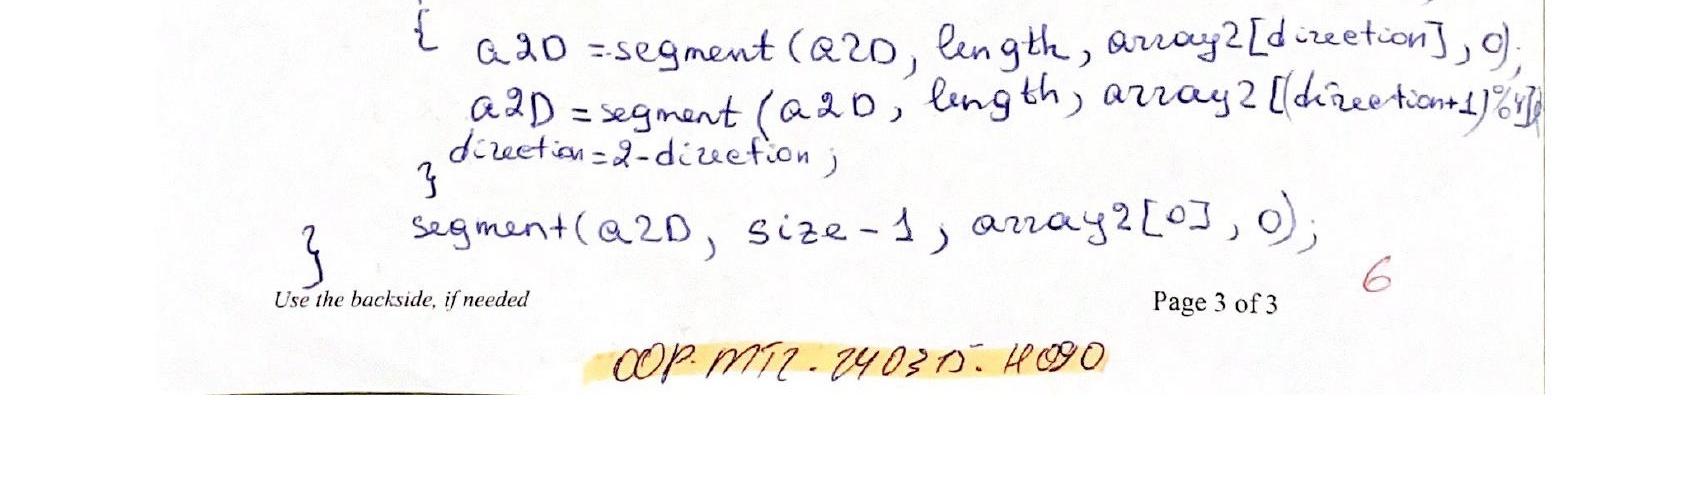 { a2D = segment (a2D, length, array2[direction], 0);
a2D = segment (a2D, length, array2[(direction+1)%4],
direction = 2 - direction ;
}
segment(a2D, size - 1, array2[0], 0);
}
6
Use the backside, if needed Page 3 of 3
OOP. MT2. 240315. H090